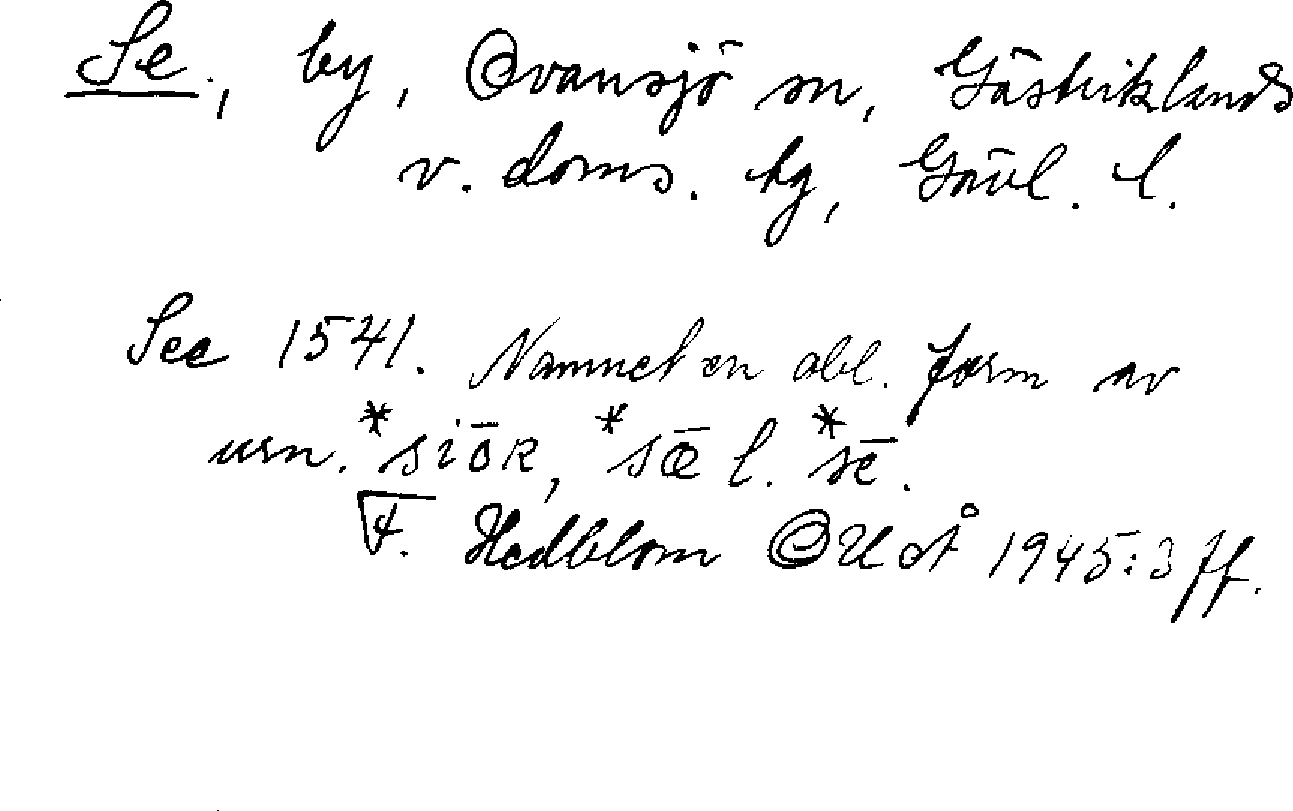 Se, by, Ovansjö sn, Gästriklands
v. doms. hg, Gävl. l.
See 1541. Namnet en obl. form av
urn. *siōR, *sœ̄ l. *sē.
F. Hedblom OUÅ 1945:3 ff.